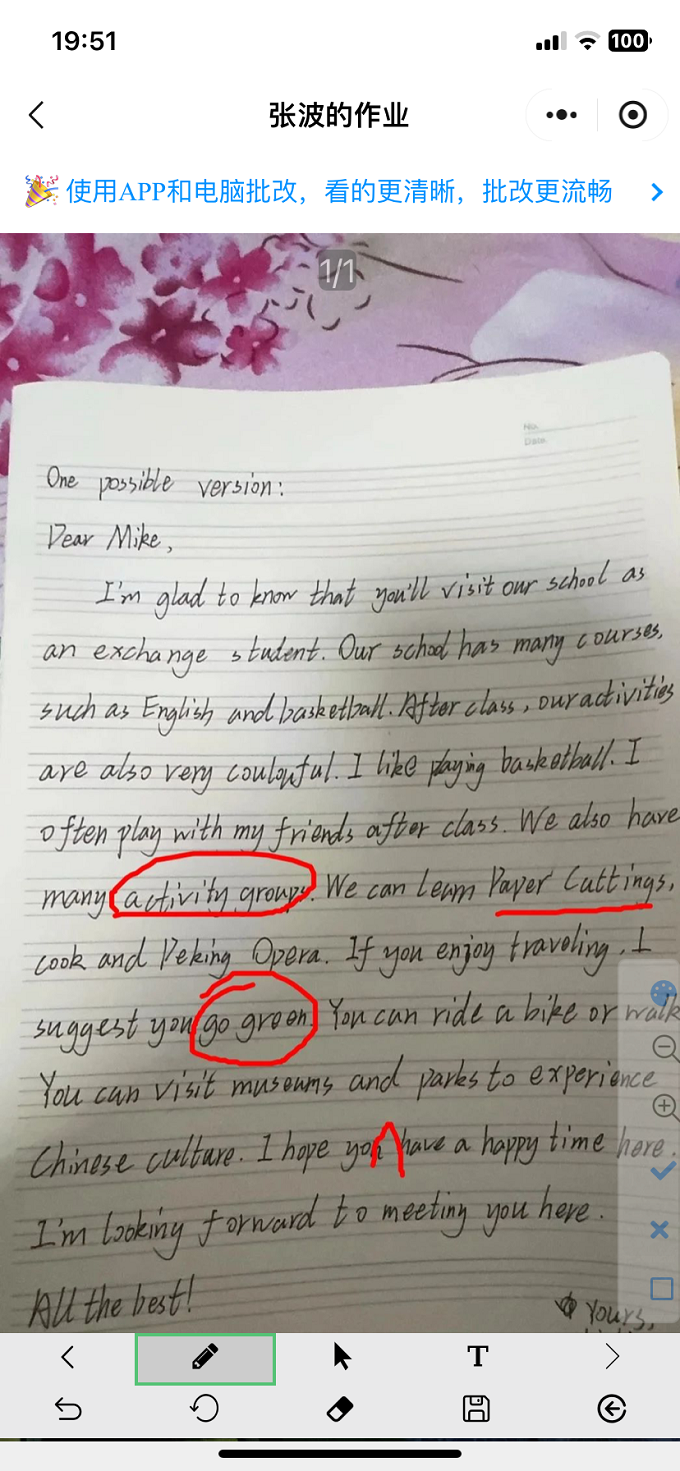 19:51
100
张波的作业
🎉使用APP和电脑批改，看的更清晰，批改更流畅
1/1
No.
Date
One possible version:
Dear Mike,
I'm glad to know that you'll visit our school as
an exchange student. Our school has many courses,
such as English and basketball. After class, our activities
are also very coulouful. I like playing basketball. I
often play with my friends after class. We also have
many activity groups. We can learn Paper Cuttings,
cook and Peking Opera. If you enjoy traveling, I
suggest you go green. You can ride a bike or walk
You can visit museums and parks to experience
Chinese culture. I hope you have a happy time here.
I'm looking forward to meeting you here.
All the best!
Yours,
T